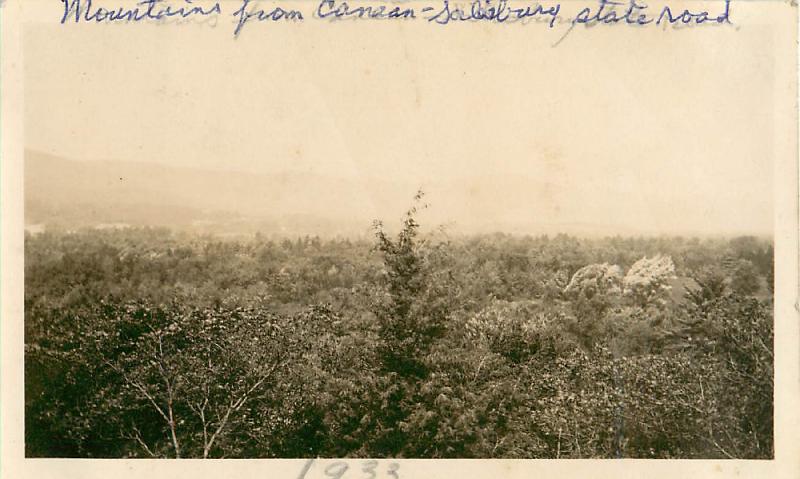 Mountains from Canaan-Salisbury state road.
1933